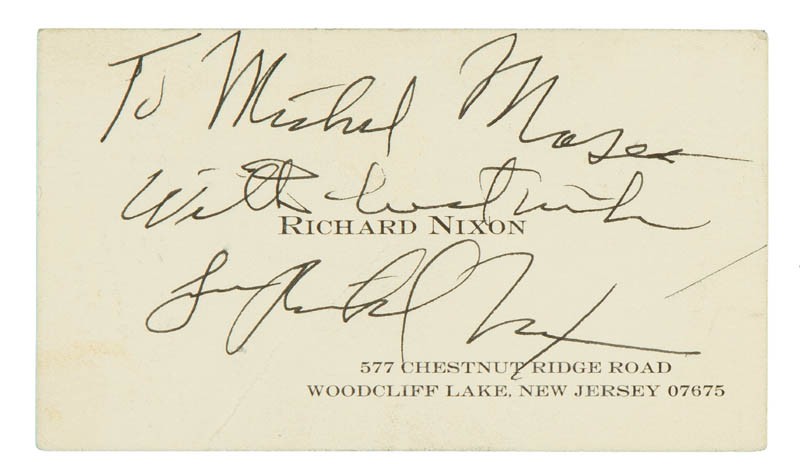 To Michel Moser
With best wishes
RICHARD NIXON
from Richard Nixon
577 CHESTNUT RIDGE ROAD
WOODCLIFF LAKE, NEW JERSEY 07675